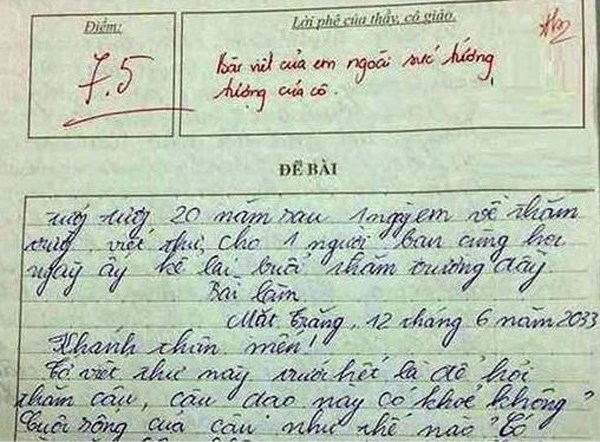 Điểm:
Lời phê của thầy, cô giáo.
7.5
Bài viết của em ngoài sức tưởng
tượng của cô.
ĐỀ BÀI
20 năm sau 1 ngày em về thăm
trường, viết thư cho 1 người bạn cùng học
ngày ấy kể lại buổi thăm trường đầy
Bài làm
Mặt Trăng, 12 tháng 6 năm 2033
Khánh thân mến!
Tớ viết thư này trước hết là để hỏi
thăm cậu, cậu dạo này có khoẻ không?
Cuộc sống của cậu như thế nào? Có